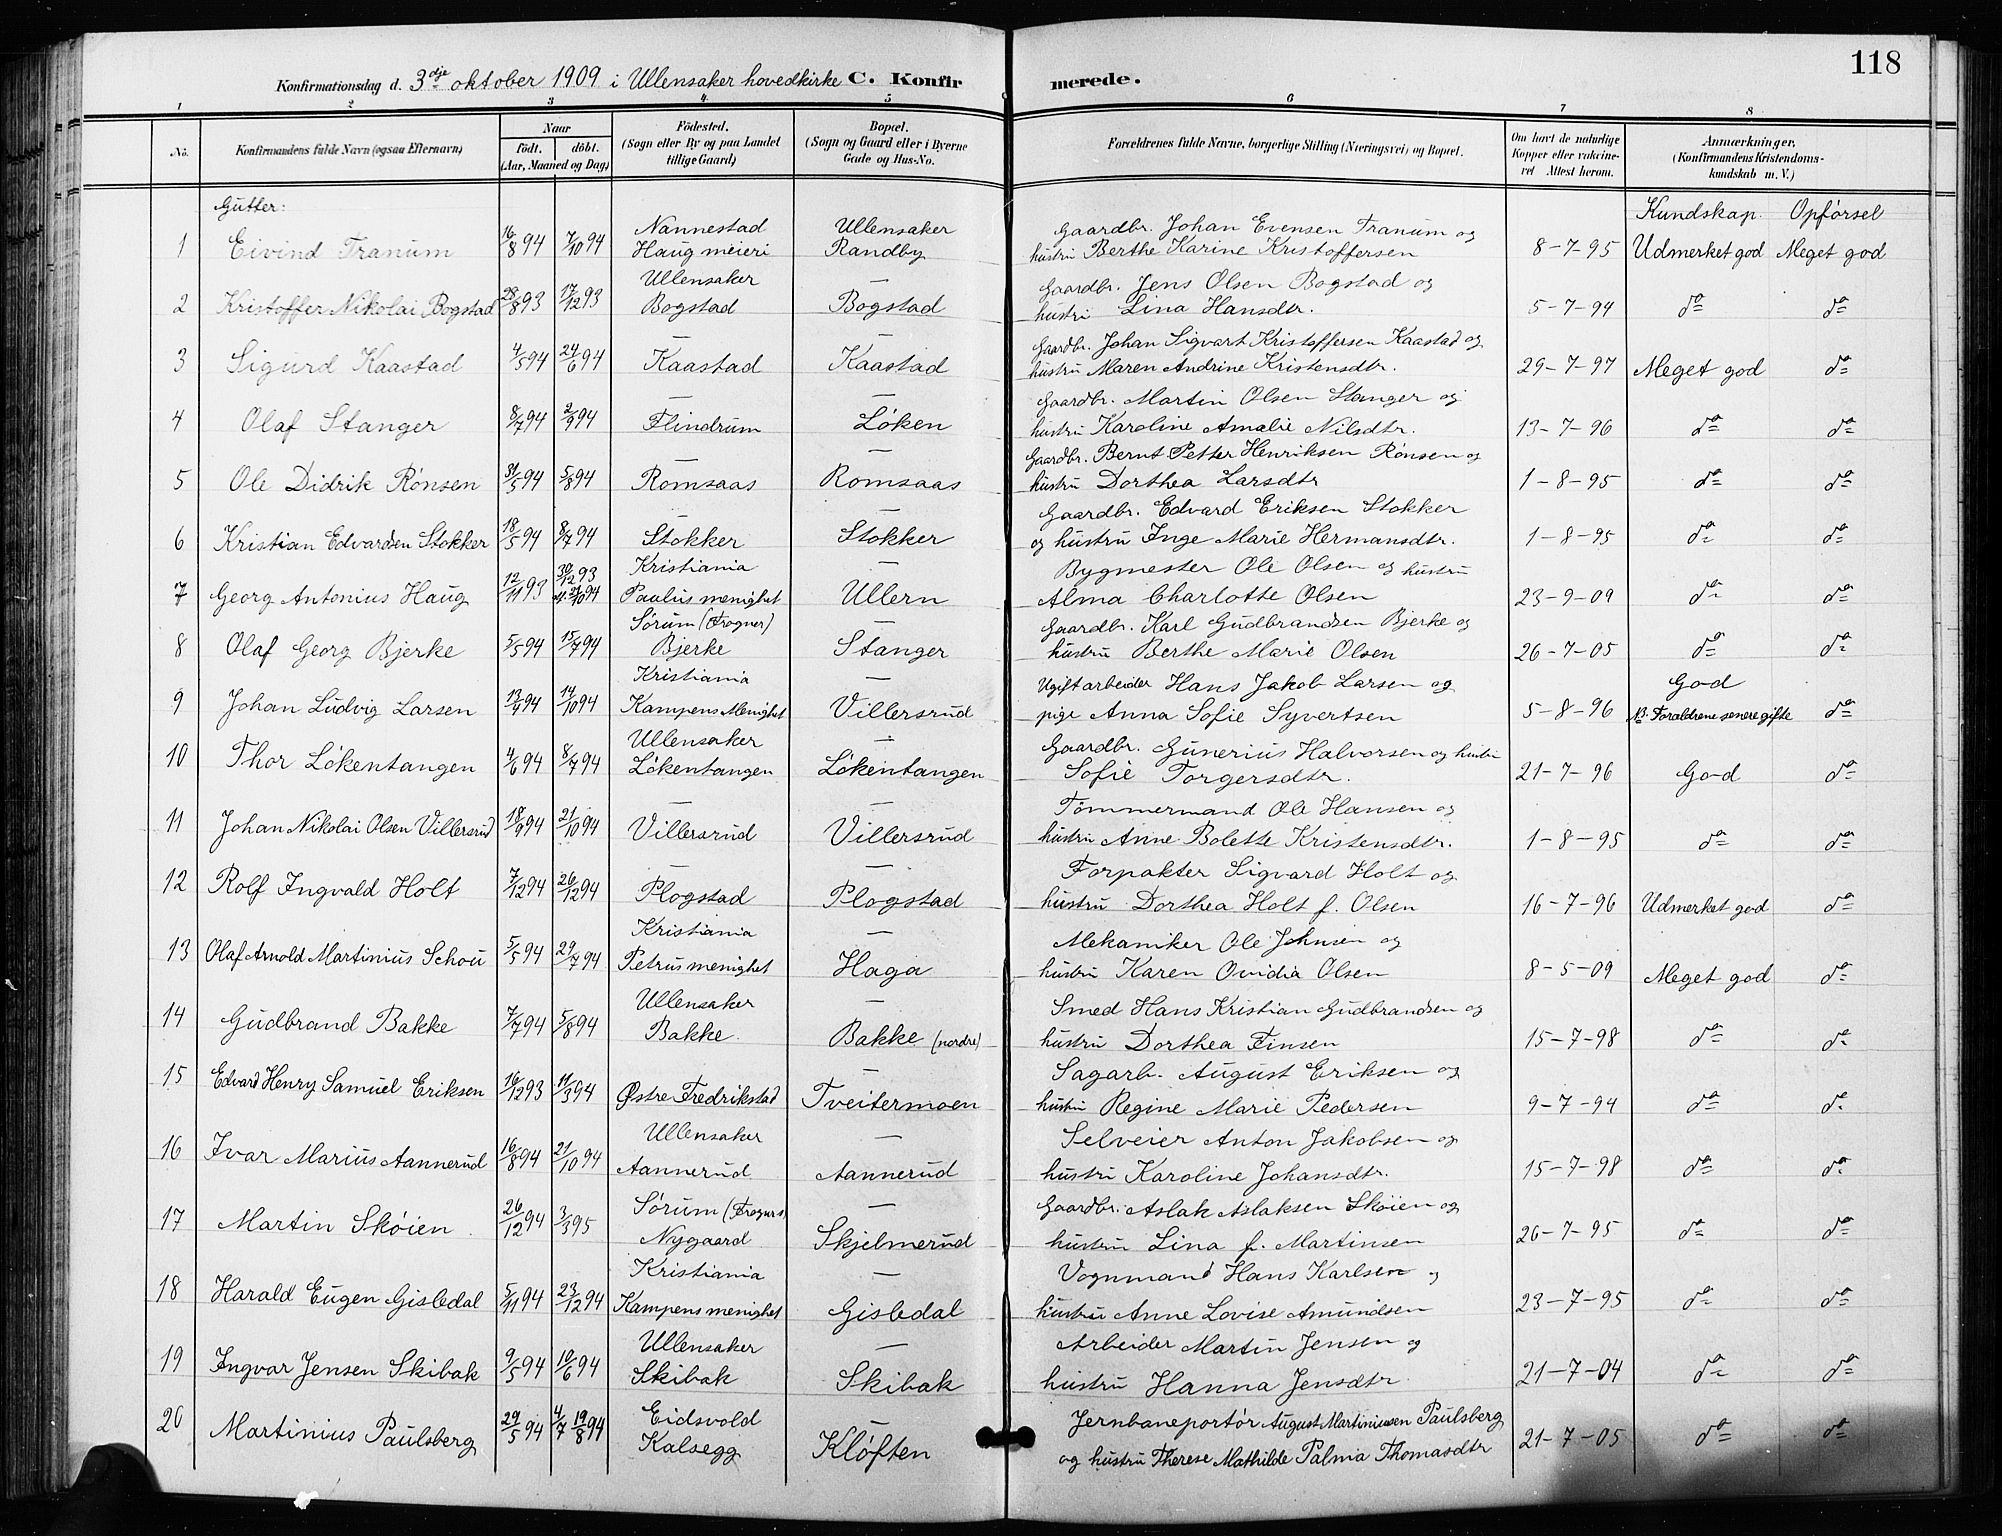 118
Konfirmationsdag d. 3dje oktober 1909 i Ullensaker hovedkirke C. Konfirmerede.
1 2 3 4 5 6 7 8
No. Konfirmandens fulde Navn (ogsaa Efternavn) Naar födt. döbt. (Aar, Maaned og Dag) Födested. (Sogn eller By og paa Landet tillige Gaard) Bopæl. (Sogn og Gaard eller i Byerne Gade og Hus-No. Forældrenes fulde Navne, borgerlige Stilling (Næringsvei) og Bopæl. Om havt de naturlige Kopper eller vaccineret Attest herom. Anmærkninger. (Konfirmandens Kristendomskundskab m. V.)
Gutter: Kundskap Opførsel
Nannestad Ullensaker Gaardbr. Johan Evensen Tranum og
1 Eivind Tranum 16/8 94 7/10 94 Haug meieri Randby hustru Berthe Karine Kristoffersen 8-7-95 Udmerket god Meget god
Ullensaker — Gaardbr. Jens Olsen Bogstad og
2 Kristoffer Nikolai Bogstad 28/8 93 17/12 93 Bogstad Bogstad hustru Lina Hansdtr. 5-7-94 do do
— — Gaardbr. Johan Sigvart Kristoffersen Kaastad og
3 Sigurd Kaastad 4/5 94 24/6 94 Kaastad Kaastad hustru Maren Andrine Kristensdtr. 29-7-97 Meget god do
— — Gaardbr. Martin Olsen Stanger og
4 Olaf Stanger 8/7 94 2/9 94 Flindrum Løken hustru Karoline Amalie Nilsdtr. 13-7-96 do do
— — Gaardbr. Bernt Petter Henriksen Rønsen og
5 Ole Didrik Rønsen 31/5 94 5/8 94 Romsaas Romsaas hustru Dorthea Larsdtr 1-8-95 do do
— — Gaardbr. Edvard Eriksen Stokker
6 Kristian Edvardsen Stokker 18/5 94 8/7 94 Stokker Stokker og hustru Inge Marie Hermansdtr. 1-8-95 do do
Kristiania — Bygmester Ole Olsen og hustru
7 Georg Antonius Haug 12/11 93 30/12 93 Paulus menighet Ullern Alma Charlotte Olsen 23-9-09 do do
Sørum (Frogner) — Gaardbr. Karl Gudbrandsen Bjerke og
8 Olaf Georg Bjerke 5/5 94 15/7 94 Bjerke Stanger hustru Berthe Marie Olsen 26-7-05 do do
Kristiania — Ugift arbeider Hans Jakob Larsen og God
9 Johan Ludvig Larsen 13/4 94 14/10 94 Kampens Menighet Villersrud pige Anna Sofie Syvertsen 5-8-96 NB. Forældrene senere gifte do
Ullensaker — Gaardbr. Gunerius Halvorsen og hustru
10 Thor Løkentangen 4/6 94 8/7 94 Løkentangen Løkentangen Sofie Torgersdtr. 21-7-96 God do
— — Tømmermand Ole Hansen og
11 Johan Nikolai Olsen Villersrud 18/9 94 21/10 94 Villersrud Villersrud hustru Anne Bolette Kristensdtr. 1-8-95 do do
— — Forpakter Sigvard Holt og
12 Rolf Ingvald Holt 7/12 94 26/12 94 Plogstad Plogstad hustru Dorthea Holt f. Olsen 16-7-96 Udmerket god do
Kristiania — Mekaniker Ole Johnsen og
13 Olaf Arnold Martinius Schou 5/5 94 29/7 94 Petrus menighet Haga hustru Karen Ovidia Olsen 8-5-09 Meget god do
Ullensaker — Smed Hans Kristian Gudbrandsen og
14 Gudbrand Bakke 7/7 94 5/8 94 Bakke Bakke (nordre) hustru Dorthea Finsen 15-7-98 do do
— Sagarb. August Eriksen og
15 Edvard Henry Samuel Eriksen 16/12 93 11/3 94 Østre Fredrikstad Tveitermoen hustru Regine Marie Pedersen 9-7-94 do do
Ullensaker — Selveier Anton Jakobsen og
16 Ivar Marius Aannerud 16/8 94 21/10 94 Aannerud Aannerud hustru Karoline Johansdtr. 15-7-98 do do
Sørum — Gaardbr. Aslak Aslaksen Skøien og
17 Martin Skøien 26/12 94 3/3 95 Nygaard Skjelmerud hustru Lina f. Martinsen 26-7-95 do do
Kristiania — Vognmand Hans Karlsen og
18 Harald Eugen Gisledal 5/11 94 23/12 94 Kampens menighet Gisledal hustru Anne Lovise Amundsen 23-7-95 do do
Ullensaker — Arbeider Martin Jensen og
19 Ingvar Jensen Skibak 9/5 94 10/6 94 Skibak Skibak hustru Hanna Jensdtr. 21-7-04 do do
Eidsvold Jernbaneportør August Martiniusen Paulsberg
20 Martinius Paulsberg 29/5 94 19/8 94 Kalsegg Kløften og hustru Therese Mathilde Palma Thomasdtr 21-7-05 do do